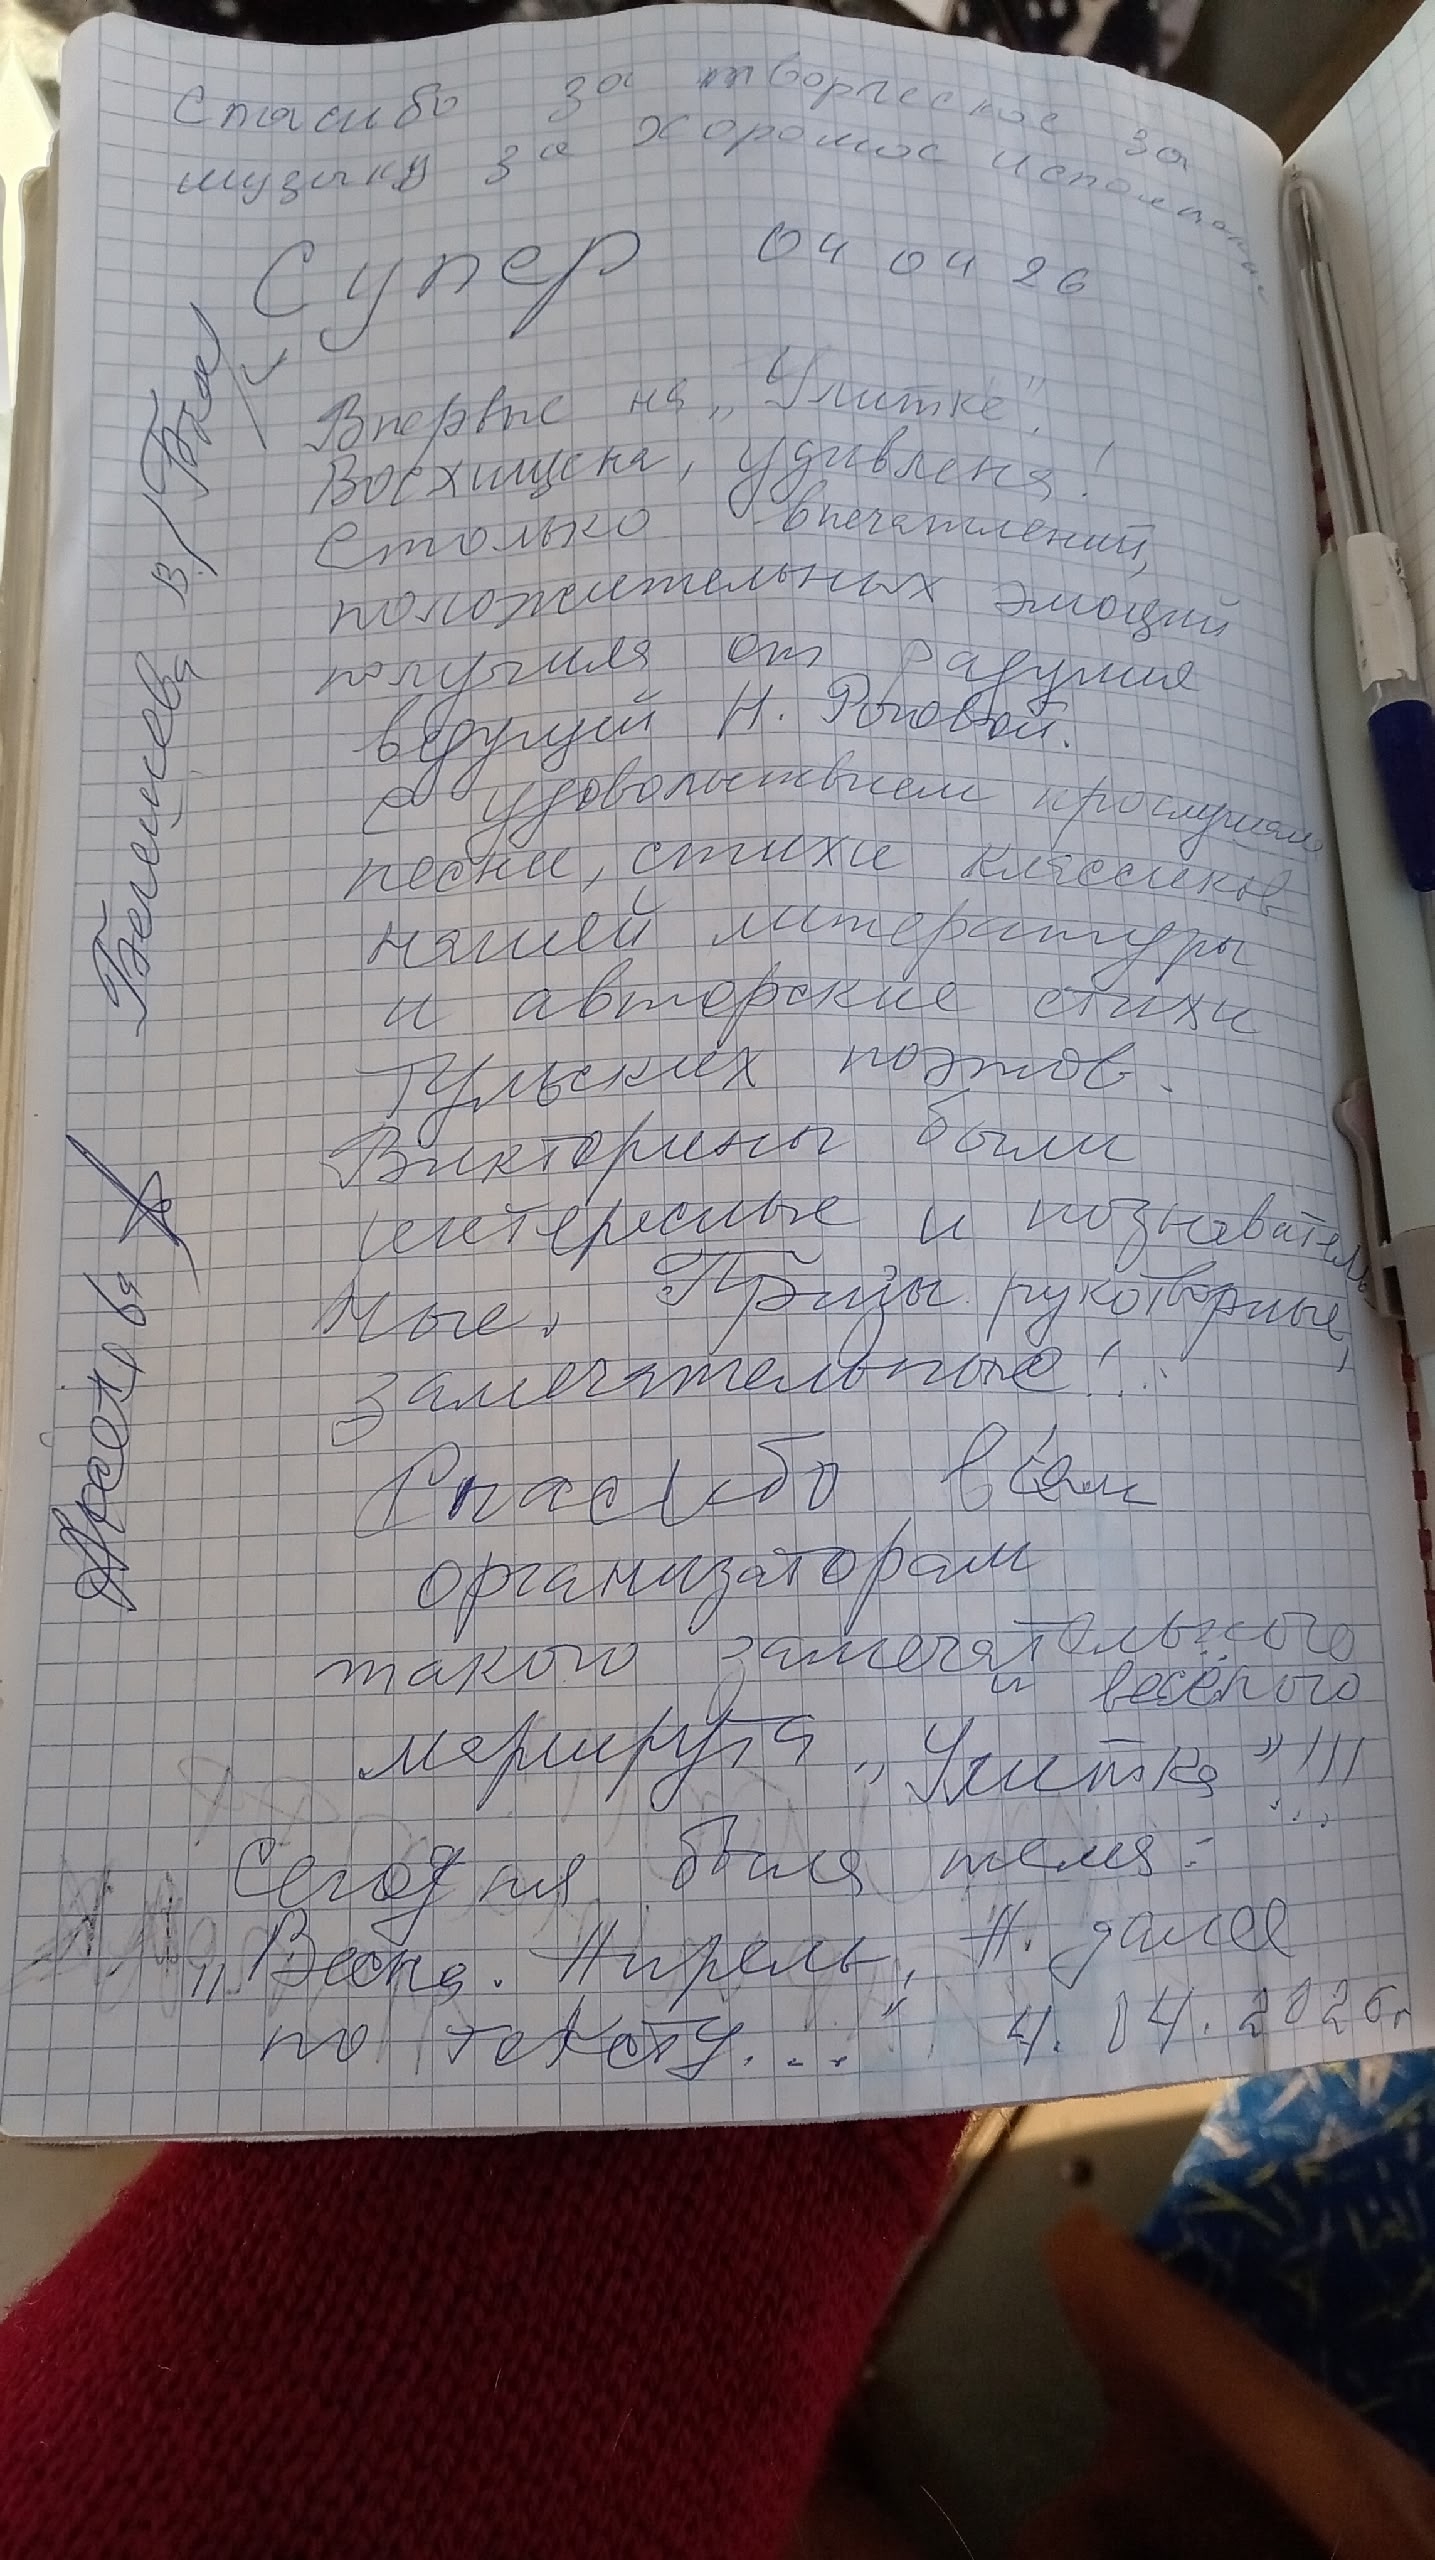 Спасибо за творческое за
музыку за хорошое исполнение
Супер 04 04 26
Впервые на „Улитке".
Восхищена, удивлена!
Столько впечатлений,
положительных эмоций
получила от радушия
ведущей Н. Роговой.
С удовольствием прослушали
песни, стихи классиков
нашей литературы
и авторские стихи
Тульских поэтов.
Викторины были
интересные и познаватель
ные. Призы рукотворные,
замечательные!
Спасибо всем
организаторам
такого замечательного
и весёлого
маршрута „Улитка"!!!
Сегодня была тема:
„Весна. Апрель, А. далее
по тексту..." 4. 04. 2026г
В.